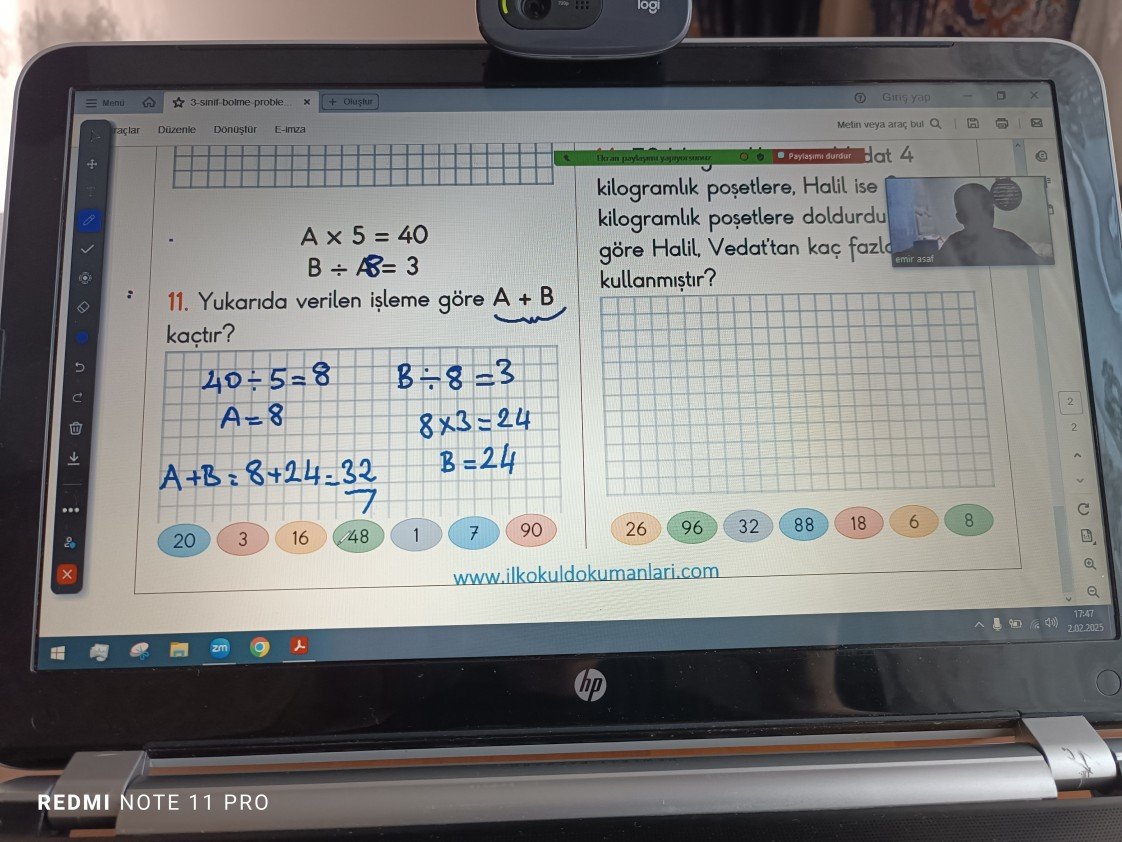 logi
Menü
3-sinif-bolme-proble...
+ Oluştur
Giriş yap
raçlar Düzenle Dönüştür E-imza
Metin veya araç bul
Ekran paylaşımı yapıyorsunuz
Paylaşımı durdur
A × 5 = 40
B ÷ A8 = 3
11. Yukarıda verilen işleme göre A + B
kaçtır?
40÷5=8
A=8
B÷8=3
8×3=24
B=24
A+B=8+24=32
20 3 16 48 1 7 90
dat 4
kilogramlık poşetlere, Halil ise
kilogramlık poşetlere doldurdu
göre Halil, Vedat'tan kaç fazla
kullanmıştır?
emir asaf
26 96 32 88 18 6 8
www.ilkokuldokumanlari.com
2
2
zm
17:47
2.02.2025
hp
REDMI NOTE 11 PRO